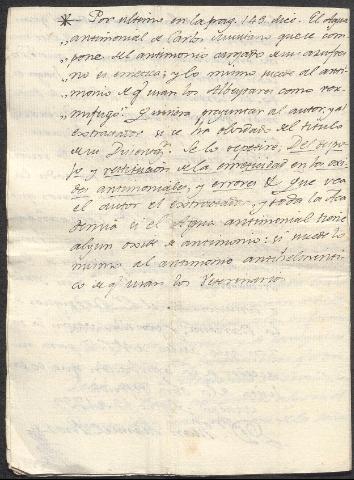 * Por ultimo en la pag. 143. dice. El Agua
„antimonial de Carlos Musitano que se com-
„pone del antimonio cargado de su azufre
„no es emetica; y lo mismo sucede al anti-
„monio de q. usan los Albeytares como ver-
„mifugo: Quisiera preguntar al autor, y al
extractador si se ha olvidado del titulo
de su Disertn. Se lo repetiré, Del
y restitucion de la emeticidad en los oxi-
des antimoniales, y errores &. que vea
el autor el extractador, y toda la Aca-
demia si el Agua antimonial tiene
algun oxide de antimonio: si sucede lo
mismo al antimonio antihelminti-
co de q. usan los Veterinarios.